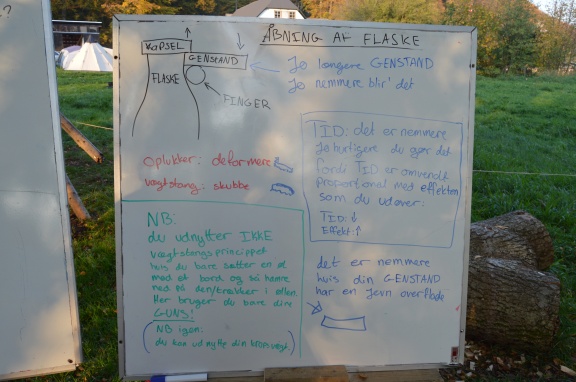 ÅBNING AF FLASKE
KAPSEL
GENSTAND
FLASKE
FINGER
Jo længere GENSTAND
Jo nemmere blir' det
Oplukker: deformere
vægtstang: skubbe
TID: det er nemmere
Jo hurtigere du gør det
fordi TID er omvendt
proportional med effekten
som du udøver:
TID:↓
Effekt:↑
NB:
du udnytter IKKE
vægtstangsprincippet
hvis du bare sætter en øl
mod et bord og så hamre
ned på den/trækker i øllen.
Her bruger du bare dine
GUNS!
(NB igen:
du kan udnytte din kropsvægt)
det er nemmere
hvis din GENSTAND
har en jævn overflade